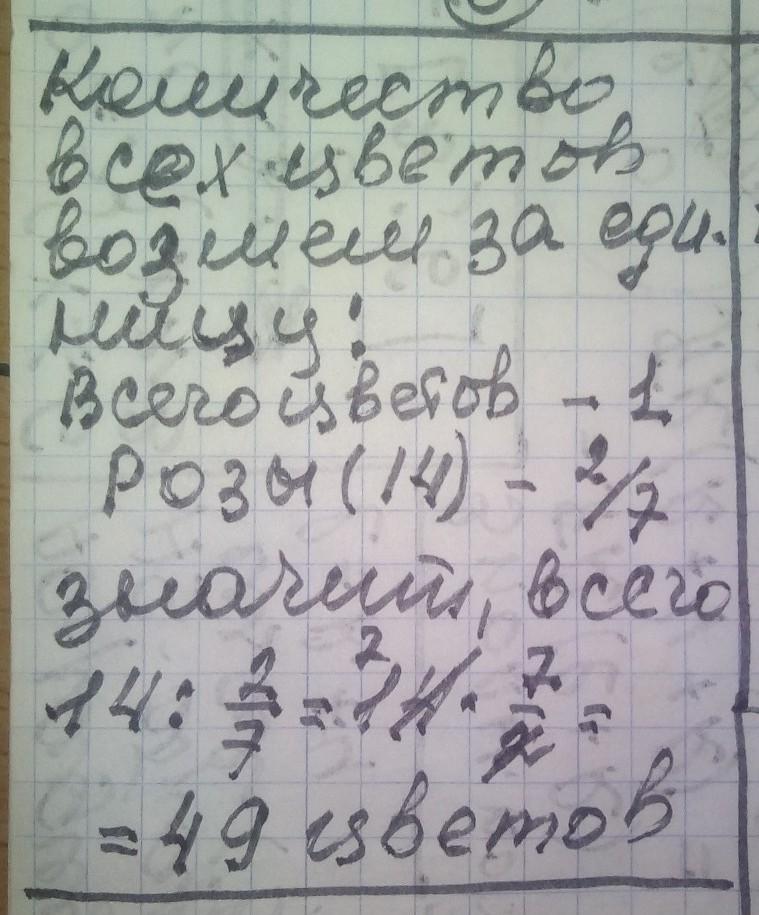 Количество
всех цветов
возмем за еди-
ницу:
Всего цветов - 1
Розы (14) - 2/7
значит, всего
14 : 2/7 = 14 · 7/2 =
= 49 цветов